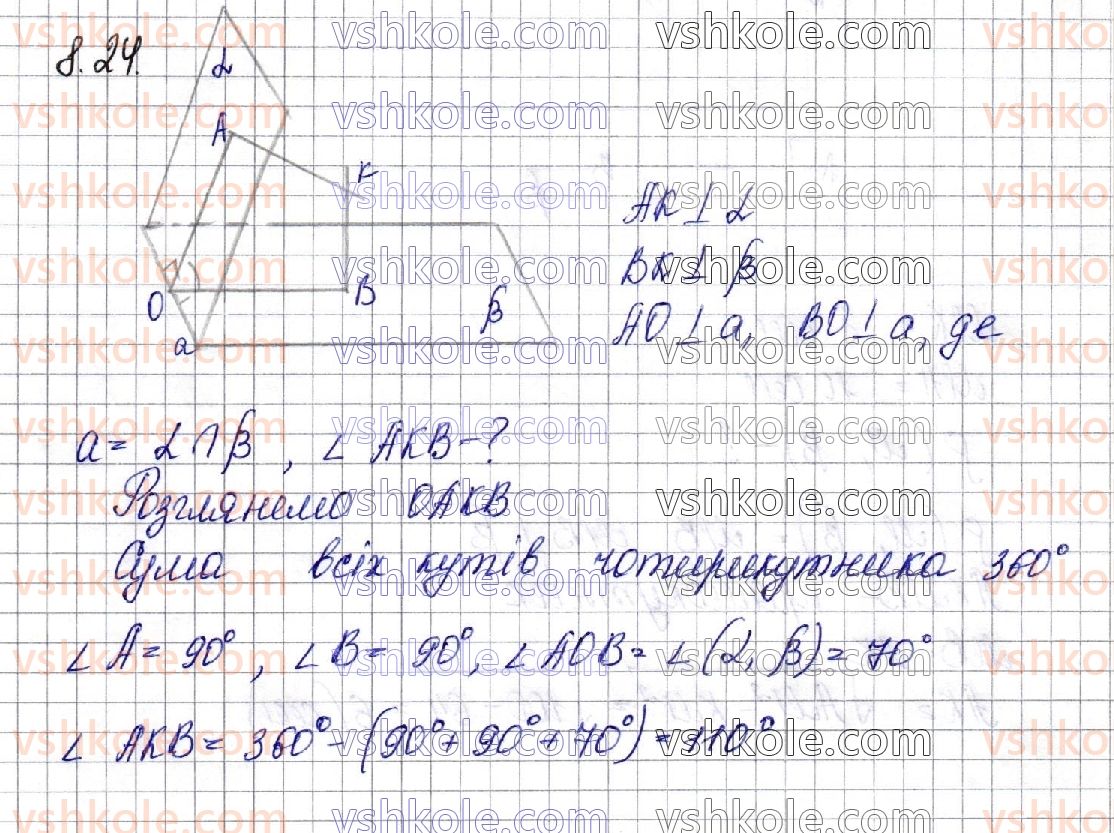 8.24.
α
A
K
O
B
β
a
AK ⊥ α
BK ⊥ β
AO ⊥ a, BO ⊥ a, де
a = α ∩ β, ∠ AKB - ?
Розглянемо OAKB
Сума всіх кутів чотирикутника 360°
∠ A = 90°, ∠ B = 90°, ∠ AOB = ∠ (α, β) = 70°
∠ AKB = 360° - (90° + 90° + 70°) = 110°
vshkole.com